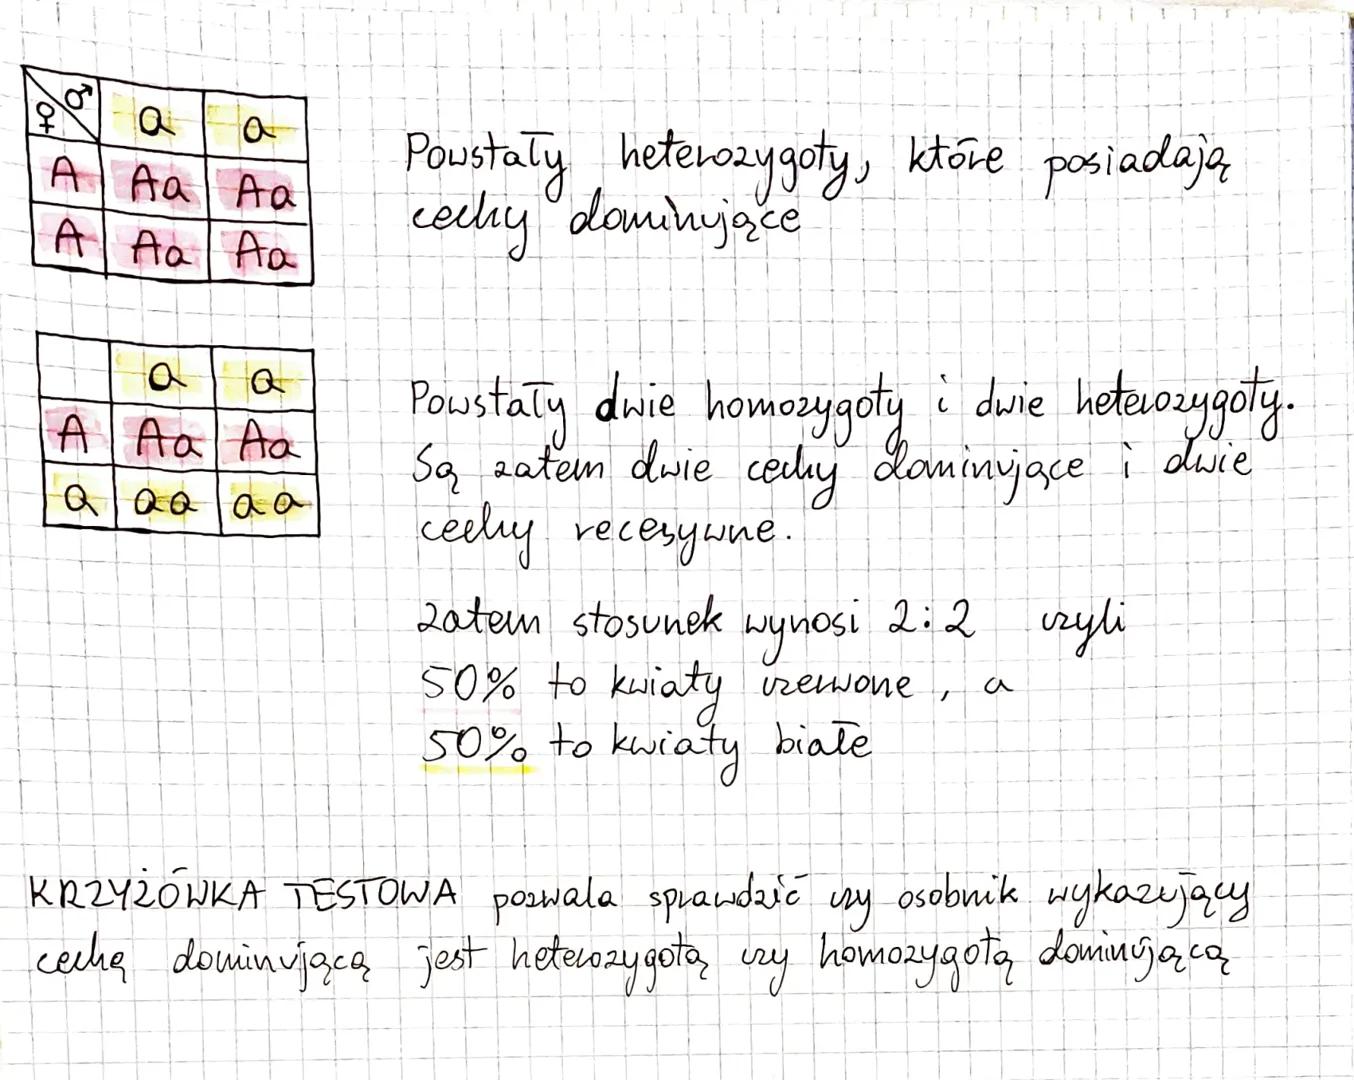 ♀ ♂ a a
A Aa Aa
A Aa Aa
Powstały heterozygoty, które posiadają
cechy dominujące
a a
A Aa Aa
a aa aa
Powstały dwie homozygoty i dwie heterozygoty.
Są zatem dwie cechy dominujące i dwie
cechy recesywne.
zatem stosunek wynosi 2:2 czyli
50% to kwiaty czerwone, a
50% to kwiaty białe
KRZYŻÓWKA TESTOWA pozwala sprawdzić czy osobnik wykazujący
cechę dominującą jest heterozygotą czy homozygotą dominującą